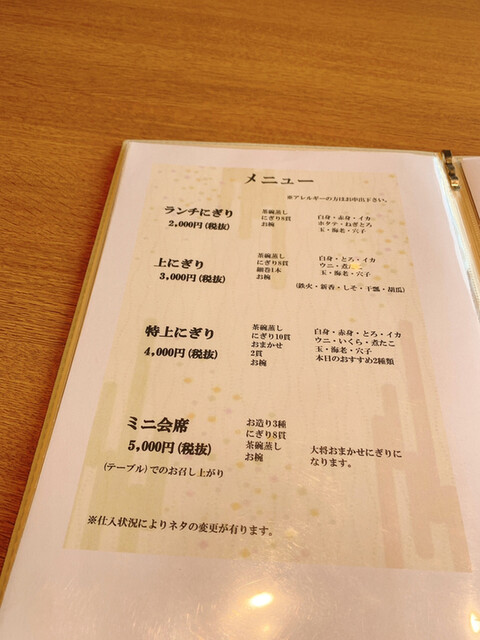 メニュー
※アレルギーの方はお申出下さい。
ランチにぎり
2,000円(税抜)
茶碗蒸し
にぎり8貫
お椀
白身・赤身・イカ
ホタテ・ねぎとろ
玉・海老・穴子
上にぎり
3,000円(税抜)
茶碗蒸し
にぎり8貫
細巻1本
お椀
白身・とろ・イカ
ウニ・煮
玉・海老・穴子
(鉄火・新香・しそ・干瓢・胡瓜)
特上にぎり
4,000円(税抜)
茶碗蒸し
にぎり10貫
おまかせ
2貫
お椀
白身・赤身・とろ・イカ
ウニ・いくら・煮たこ
玉・海老・穴子
本日のおすすめ2種類
ミニ会席
5,000円(税抜)
(テーブル)でのお召し上がり
お造り3種
にぎり8貫
茶碗蒸し
お椀
大将おまかせにぎりに
なります。
※仕入状況によりネタの変更が有ります。